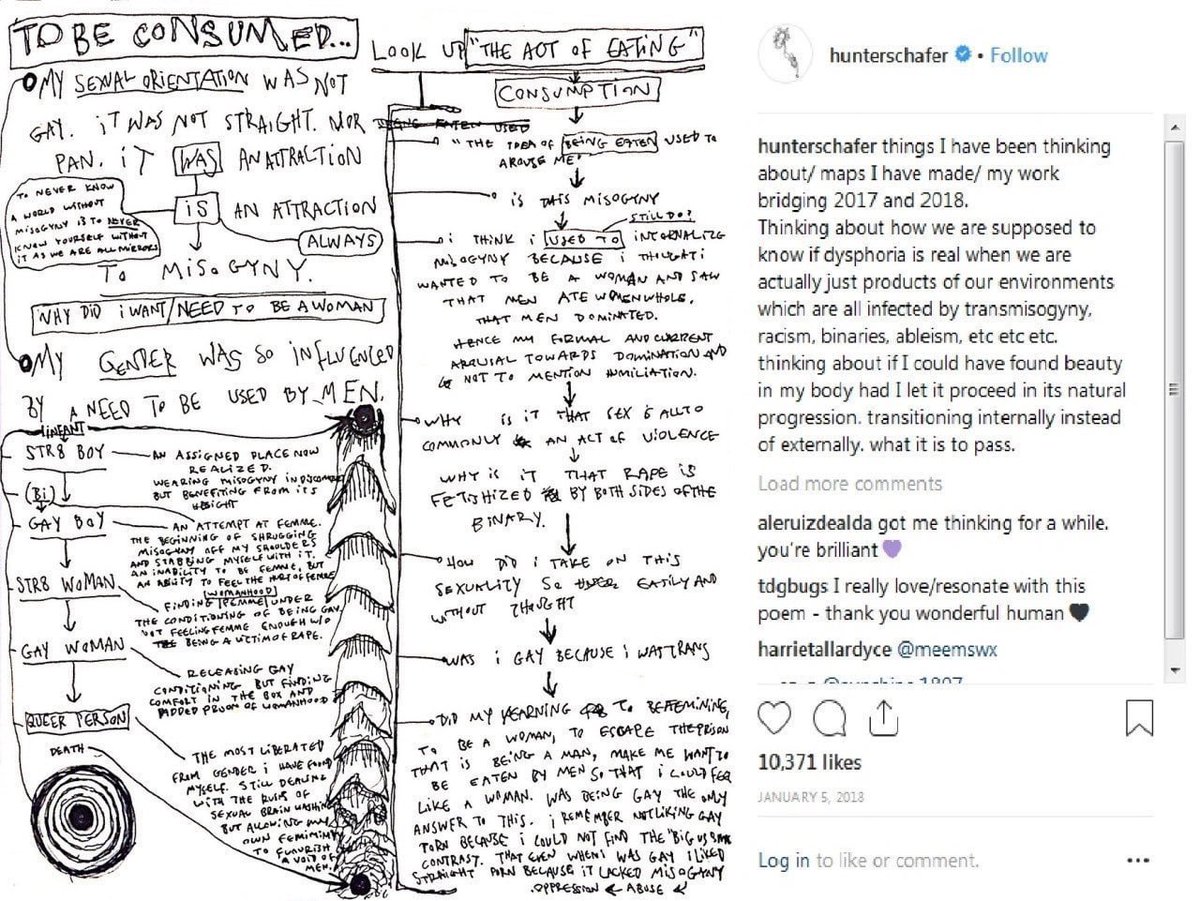 TO BE CONSUMED...
MY SEXUAL ORIENTATION WAS NOT
GAY. IT WAS NOT STRAIGHT. NOR
PAN. IT WAS AN ATTRACTION
IS AN ATTRACTION
ALWAYS
TO MISOGYNY.
TO NEVER KNOW
A WORLD WITHOUT
MISOGYNY IS TO NEVER
KNOW YOURSELF WITHOUT
IT AS WE ARE ALL MIRRORS
WHY DID i WANT/NEED TO BE A WOMAN
MY GENDER WAS SO INFLUENCED
BY A NEED TO BE USED BY MEN.
INFANT
STR8 BOY
AN ASSIGNED PLACE NOW
REALIZED.
WEARING MISOGYNY IN DISCOMFORT
BUT BENEFITING FROM ITS
WEIGHT
(Bi)
GAY BOY
AN ATTEMPT AT FEMME.
THE BEGINNING OF SHRUGGING
MISOGYNY OFF MY SHOULDERS
AND STABBING MYSELF WITH IT.
AN INABILITY TO BE FEMME, BUT
AN ABILITY TO FEEL THE HURT OF FEMME
STR8 WOMAN
WOMANHOOD
FINDING FEMME UNDER
THE CONDITIONING OF BEING GAY.
NOT FEELING FEMME ENOUGH W/O
BEING A VICTIM OF RAPE.
GAY WOMAN
RELEASING GAY
CONDITIONING BUT FINDING
COMFORT IN THE BOX AND
ADDED PROOF OF WOMANHOOD
QUEER PERSON
THE MOST LIBERATED
FROM GENDER i HAVE FOUND
MYSELF. STILL DEALING
WITH THE RUINS OF
SEXUAL BRAIN WASHING
BUT ALLOWING MY
OWN FEMININITY
TO FLOURISH
A VOID OF
MEN.
DEATH
LOOK UP "THE ACT OF EATING"
CONSUMPTION
BEING EATEN USED
"THE IDEA OF BEING EATEN USED TO
AROUSE ME"
IS THIS MISOGYNY
STILL DO?
i THINK i USED TO INTERNALIZE
MISOGYNY BECAUSE i THOUGHT i
WANTED TO BE A WOMAN AND SAW
THAT MEN ATE WOMEN WHOLE.
THAT MEN DOMINATED.
HENCE MY FORMAL AND CURRENT
AROUSAL TOWARDS DOMINATION AND
NOT TO MENTION HUMILIATION.
WHY IS IT THAT SEX IS ALL TO
COMMONLY AN ACT OF VIOLENCE
WHY IS IT THAT RAPE IS
FETISHIZED BY BOTH SIDES OF THE
BINARY.
HOW DID i TAKE ON THIS
SEXUALITY SO EATILY AND
WITHOUT THOUGHT
WAS i GAY BECAUSE i WAS TRANS
DID MY YEARNING TO BE FEMININE,
TO BE A WOMAN, TO ESCAPE THE PRISON
THAT IS BEING A MAN, MAKE ME WANT TO
BE EATEN BY MEN SO THAT i COULD FEEL
LIKE A WOMAN. WAS BEING GAY THE ONLY
ANSWER TO THIS. i REMEMBER NOT LIKING GAY
PORN BECAUSE i COULD NOT FIND THE "BIG VS SMALL
CONTRAST. THAT EVEN WHEN i WAS GAY i LIKED
STRAIGHT PORN BECAUSE IT LACKED MISOGYNY
OPPRESSION ← ABUSE
hunterschafer • Follow
hunterschafer things I have been thinking
about/ maps I have made/ my work
bridging 2017 and 2018.
Thinking about how we are supposed to
know if dysphoria is real when we are
actually just products of our environments
which are all infected by transmisogyny,
racism, binaries, ableism, etc etc etc.
thinking about if I could have found beauty
in my body had I let it proceed in its natural
progression. transitioning internally instead
of externally. what it is to pass.
Load more comments
aleruizdealda got me thinking for a while.
you're brilliant 💜
tdgbugs I really love/resonate with this
poem - thank you wonderful human 🖤
harrietallardyce @meemswx
10,371 likes
JANUARY 5, 2018
Log in to like or comment.